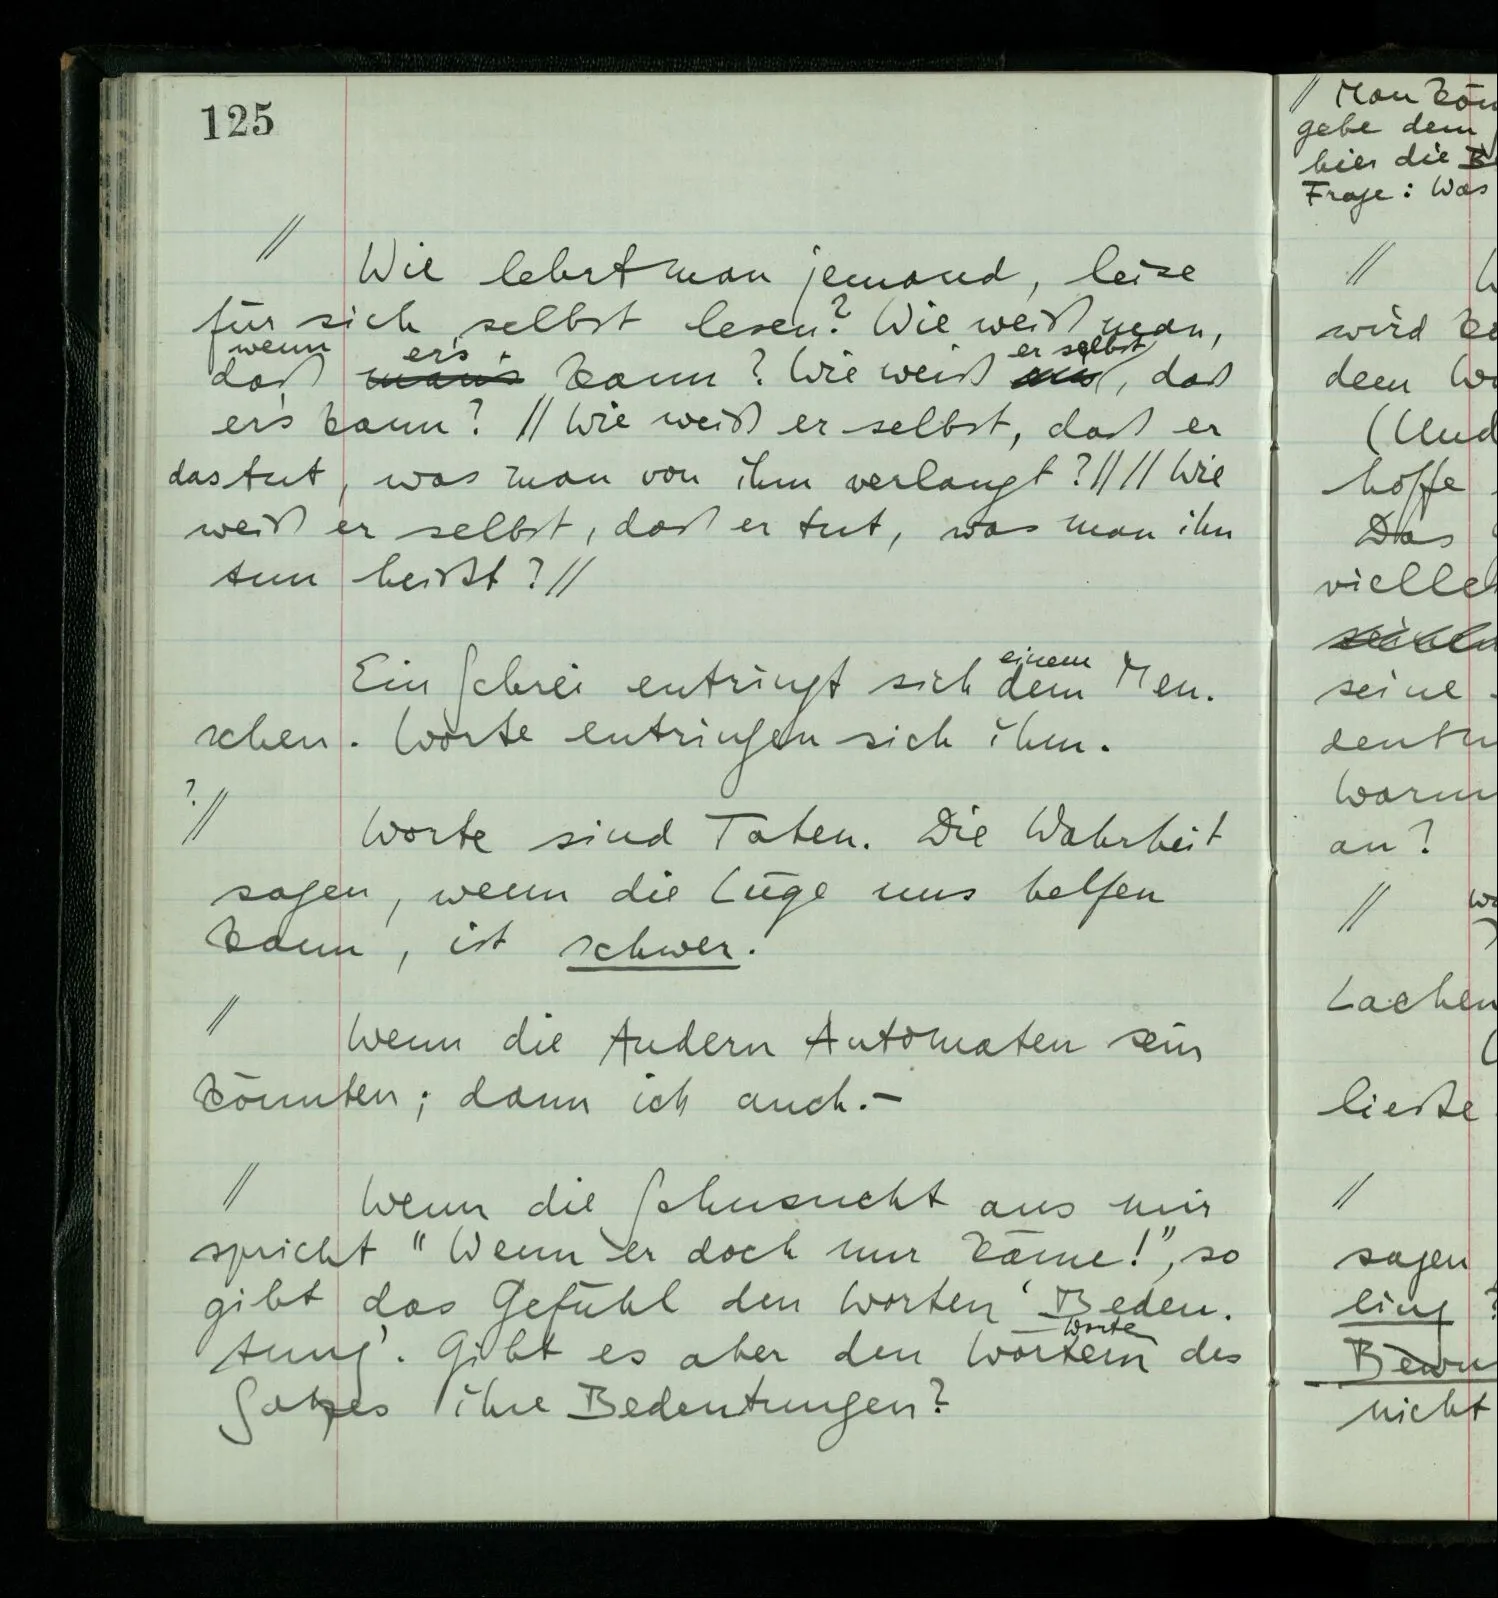 125
// Wie lehrt man jemand, leise
für sich selbst lesen? Wie weiß man,
wenn er's er selbst
daß man's kann? Wie weiß , daß
er's kann? // Wie weiß er selbst, daß er
das tut, was man von ihm verlangt? // // Wie
weiß er selbst, daß er tut, was man ihn
tun heißt? //
einem
Ein Schrei entringt sich dem Men-
schen. Worte entringen sich ihm.
?// Worte sind Taten. Die Wahrheit
sagen, wenn die Lüge uns helfen
kann, ist schwer.
// Wenn die Andern Automaten sein
könnten; dann ich auch.–
// Wenn die Sehnsucht aus mir
spricht "Wenn er doch nur käme!", so
gibt das Gefühl den Worten 'Bedeu-
Worten
tung'. Gibt es aber den Wörtern des
Satzes ihre Bedeutungen?
// Man kön
gebe dem
hier die B
Frage: Was
// W
wird
dem Wo
(Und
hoffe
Das
viellei
seine
deutu
Warum
an?
//
Lachen
ließe
//
sagen
ling
Bewu
nicht